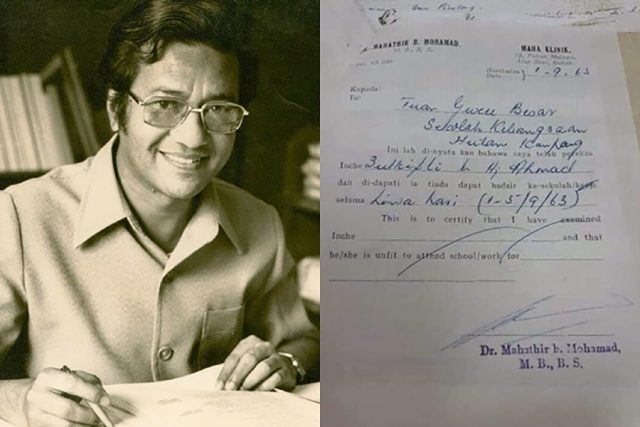 MAHATHIR B. MOHAMAD.
M. B., B. S.
MAHA KLINIK,
Alor Star, Kedah.
Haribulan
Date 1-9-63
Kapada:
To:
Tuan Guru Besar
Sekolah Kebangsaan
Hutan Kampong
Ini lah di-nyata kan bahawa saya telah pereksa
Inche Zulkifli b Hj Ahmad
dan di-dapati ia tiada dapat hadzir ka-sekolah/kerja
selama Lima hari (1-5/9/63)
This is to certify that I have examined
Inche and that
he/she is unfit to attend school/work for
Dr. Mahathir b. Mohamad,
M. B., B. S.